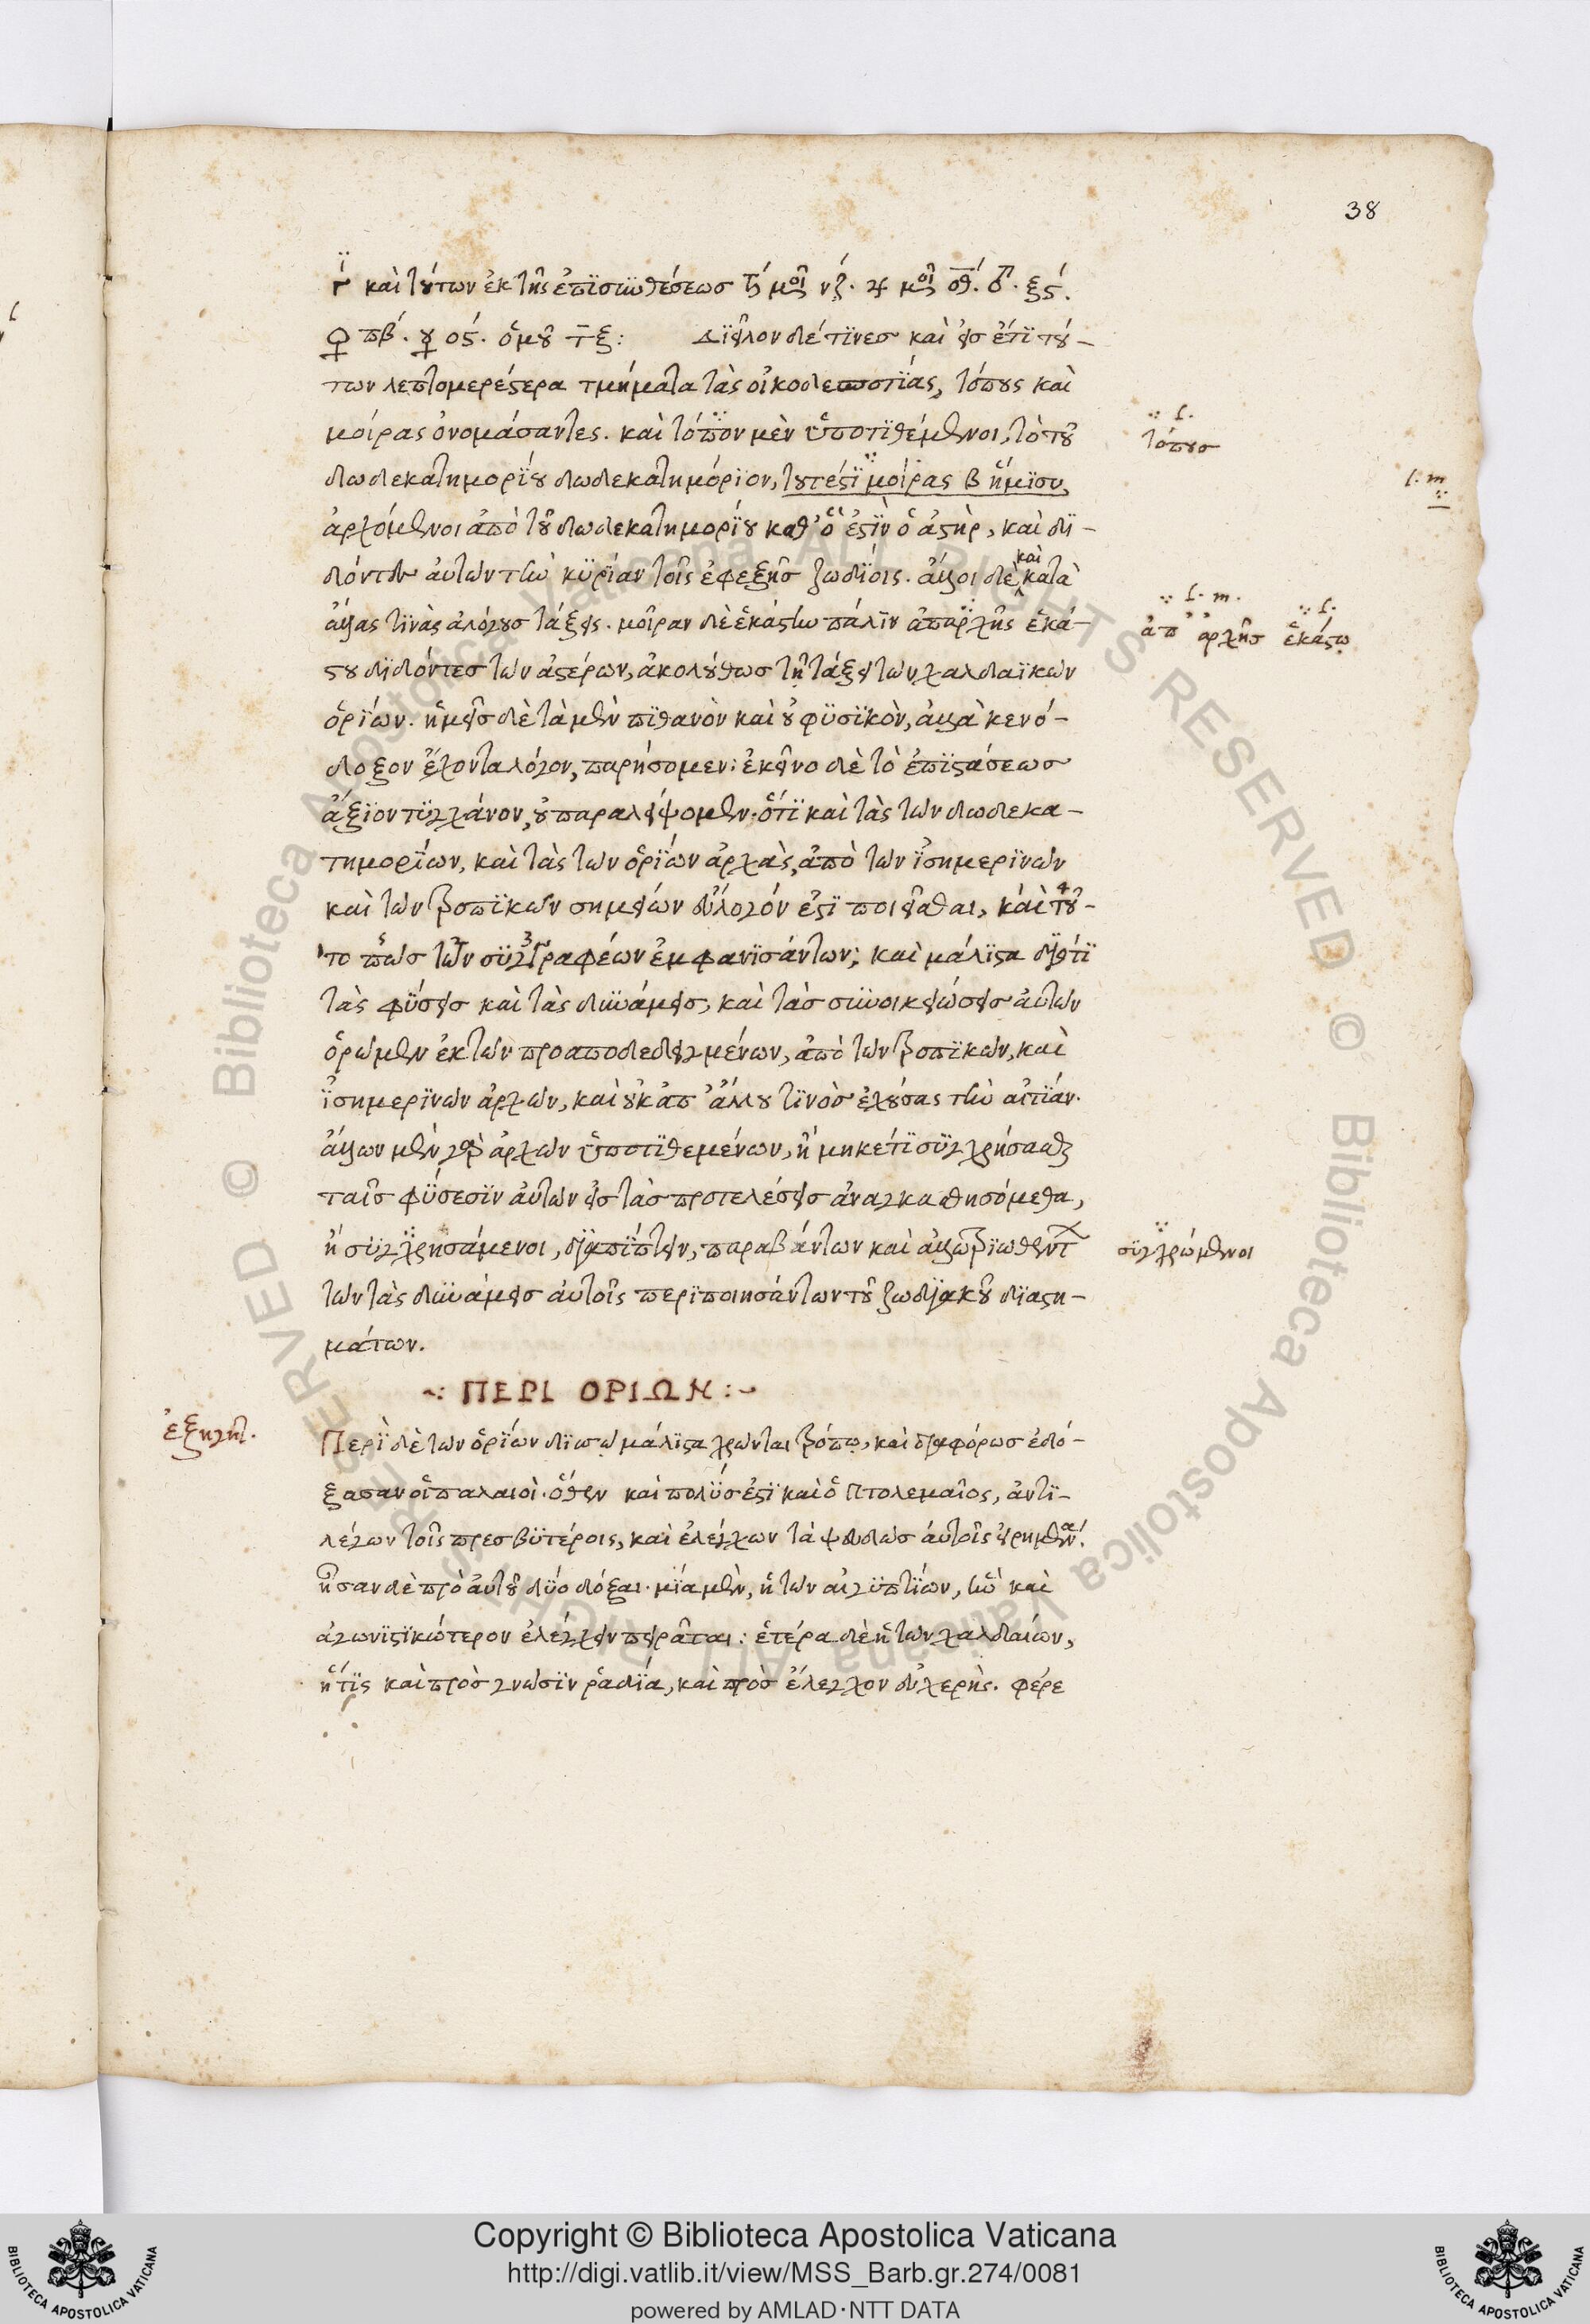 38
γ́ καὶ τούτων ἐκ τῆς ἐπισυνθέσεως ♄ μοῖ νζ́. ♃ μοῖ οθ́. ♂. ξς́.
♀ πβ́. ☿ ος́. ὁμοῦ τ̅ξ:      Διεῖλον δέ τινες καὶ εἰς ἔτι τού-
των λεπτομερέστερα τμήματα τὰς οἰκοδεσποτίας, τόπους καὶ
μοίρας ὀνομάσαντες. καὶ τόπον μὲν ὑποτιθέμενοι, τὸ τοῦ
τόπους
δωδεκατημορίου δωδεκατημόριον, τουτέστι μοίρας β ἥμισυ,
ἀρχόμενοι ἀπὸ τοῦ δωδεκατημορίου καθ' ὅ ἐστιν ὁ ἀστὴρ, καὶ δι-
δόντων αὐτῶν τὴν κυρίαν τοῖς ἐφεξῆς ζωδίοις. ἄλλοι δὲ καὶ κατὰ
ἄλλας τινὰς ἀλόγους τάξεις. μοῖραν δὲ ἑκάστην πάλιν ἀπαρχῆς ἑκά-
ἀπ' ἀρχῆς ἑκάστῳ
στου διδόντες τῶν ἀστέρων, ἀκολούθως τῇ τάξει τῶν χαλδαϊκῶν
ὁρίων. ἡμεῖς δὲ τὰ μὲν πιθανὸν καὶ οὐ φυσικὸν, ἀλλὰ κενό-
δοξον ἔχοντα λόγον, παρήσομεν: ἐκεῖνο δὲ τὸ ἐπιστάσεως
ἄξιον τυγχάνον, οὐ παραλείψομεν. ὅτι καὶ τὰς τῶν δωδεκα-
τημορίων, καὶ τὰς τῶν ὁρίων ἀρχὰς, ἀπὸ τῶν ἰσημερινῶν
καὶ τῶν τροπικῶν σημείων εὔλογόν ἐστι ποιεῖσθαι, καὶ τοῦ-
το πως τῶν συγγραφέων ἐμφανισάντων; καὶ μάλιστα διότι
τὰς φύσεις καὶ τὰς δυνάμεις, καὶ τὰς συνοικειώσεις αὐτῶν
ὁρῶμεν ἐκ τῶν προαποδεδειγμένων, ἀπὸ τῶν τροπικῶν, καὶ
ἰσημερινῶν ἀρχῶν, καὶ οὐκ ἀπ' ἄλλου τινὸς ἐχούσας τὴν αἰτίαν.
ἄλλων μὲν γὰρ ἀρχῶν ὑποτιθεμένων, ἢ μηκέτι συγχρήσασθαι
ταῖς φύσεσιν αὐτῶν εἰς τὰς προτελέσεις ἀναγκασθησόμεθα,
ἢ συγχρησάμενοι, διαπίπτειν, παραβάντων καὶ ἀλλοτριωθέντ
συγχρώμενοι
τῶν τὰς δυνάμεις αὐτοῖς περιποιησάντων τοῦ ζωδιακοῦ διαστη-
μάτων.
~: ΠΕΡΙ ΟΡΙΩΝ :~
ἐξηγητ.
Περὶ δὲ τῶν ὁρίων δισσῷ μάλιστα χρῶνται τρόπῳ, καὶ διαφόρως ἐδό-
ξασαν οἱ παλαιοὶ. ὅθεν καὶ πολύς ἐστι καὶ ὁ Πτολεμαῖος, ἀντι-
λέγων τοῖς πρεσβυτέροις, καὶ ἐλέγχων τὰ ψευδῶς αὐτοῖς εἰρημένα.
ἦσαν δὲ πρὸ αὐτοῦ δύο δόξαι. μία μὲν, ἡ τῶν αἰγυπτίων, ἣν καὶ
ἀγωνιστικώτερον ἐλέγχειν πειρᾶται: ἑτέρα δὲ ἡ τῶν χαλδαίων,
ἥτις καὶ πρὸς γνῶσιν ῥαδία, καὶ πρὸς ἔλεγχον εὐχερής. φέρε
Copyright © Biblioteca Apostolica Vaticana
http://digi.vatlib.it/view/MSS_Barb.gr.274/0081
powered by AMLAD·NTT DATA